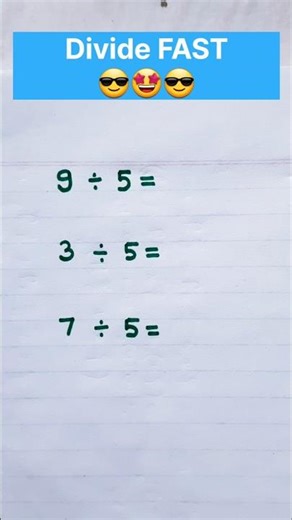 Divide FAST
😎🤩😎
9 ÷ 5 =
3 ÷ 5 =
7 ÷ 5 =